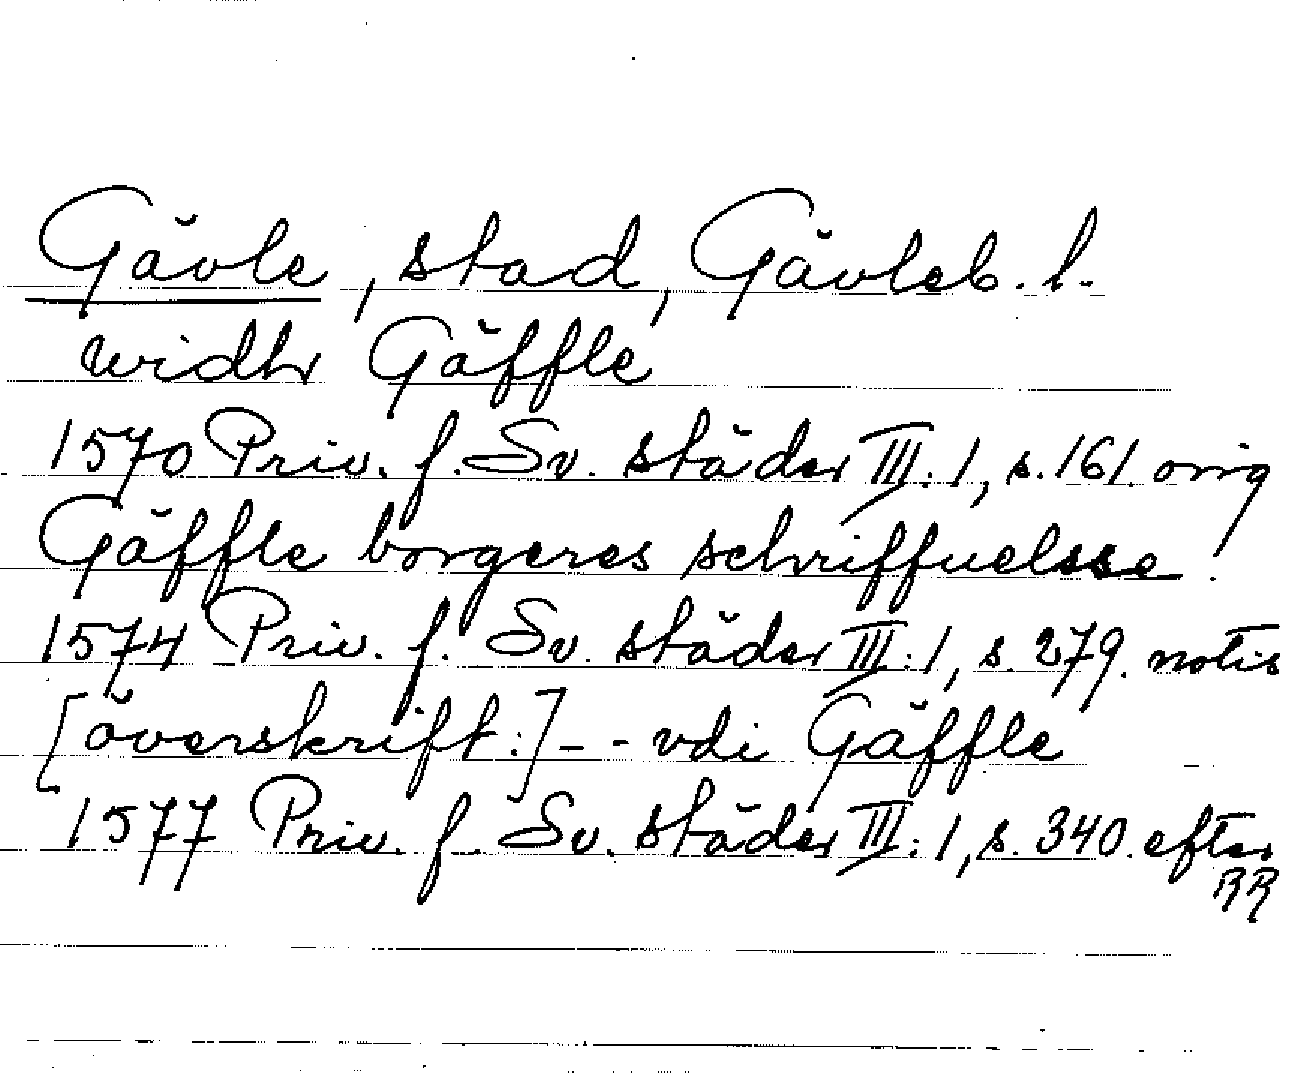 Gävle, stad, Gävleb. l.
widhr Gäffle
1570 Priv. f. Sv. städer III:1, s. 161. orig
Gäffle borgeres schriffuelsse!
1574 Priv. f. Sv. städer III:1, s. 279. notis
[överskrift:] - - vdi Gäffle
1577 Priv. f. Sv. städer III:1, s. 340. efter
RR